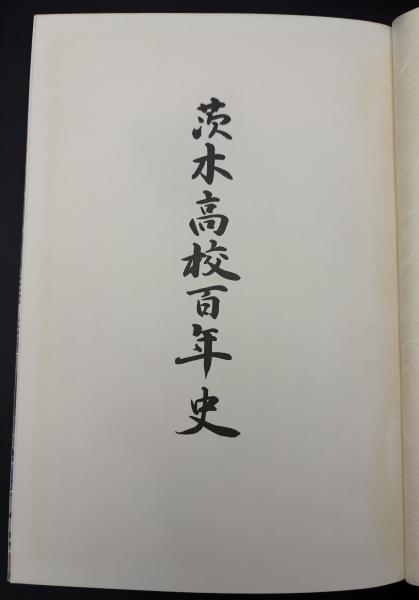 茨木高校百年史